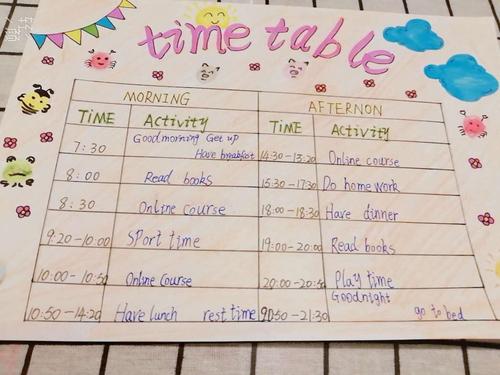 time table
MORNING AFTERNON
TIME Activity TIME Activity
7:30 Good morning Get up
Have breakfast 14:30-15:20 Online course
8:00 Read books 15:30-17:30 Do homework
8:30 Online course 18:00-18:30 Have dinner
9:20-10:00 SPort time 19:00-20:00 Read books
10:00-10:50 Online Course 20:00-20:50 Play time
Goodnight
10:50-14:20 Have lunch rest time 20:50-21:30 go to bed